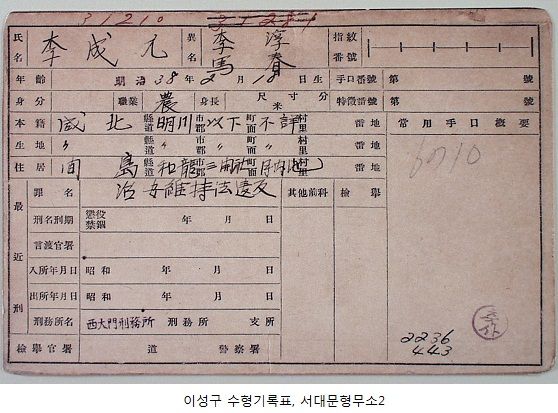 31210
氏名 李成九 異名 李淳 馬春 指紋番號
年齡 明治38年2月18日生 手口番號 第 號
身分 職業 農 身長 尺寸分 米 特徵番號 第 號
本籍 咸北 縣道 明川 市郡 以下 町面 不詳 村里 番地 常用手口概要
生地 〃 縣道 〃 市郡 〃 町面 村里 番地 6710
住居 間島 縣道 和龍 市郡 町面 村里 番地
最近刑 罪名 治安維持法違反 其他前科 檢擧
刑名刑期 懲役 禁錮 年 月 日
言渡官署
入所年月日 昭和 年 月 日
出所年月日 昭和 年 月 日
刑務所名 西大門刑務所 刑務所 支所
檢擧官署 道 警察署
2236
443
이성구 수형기록표, 서대문형무소2